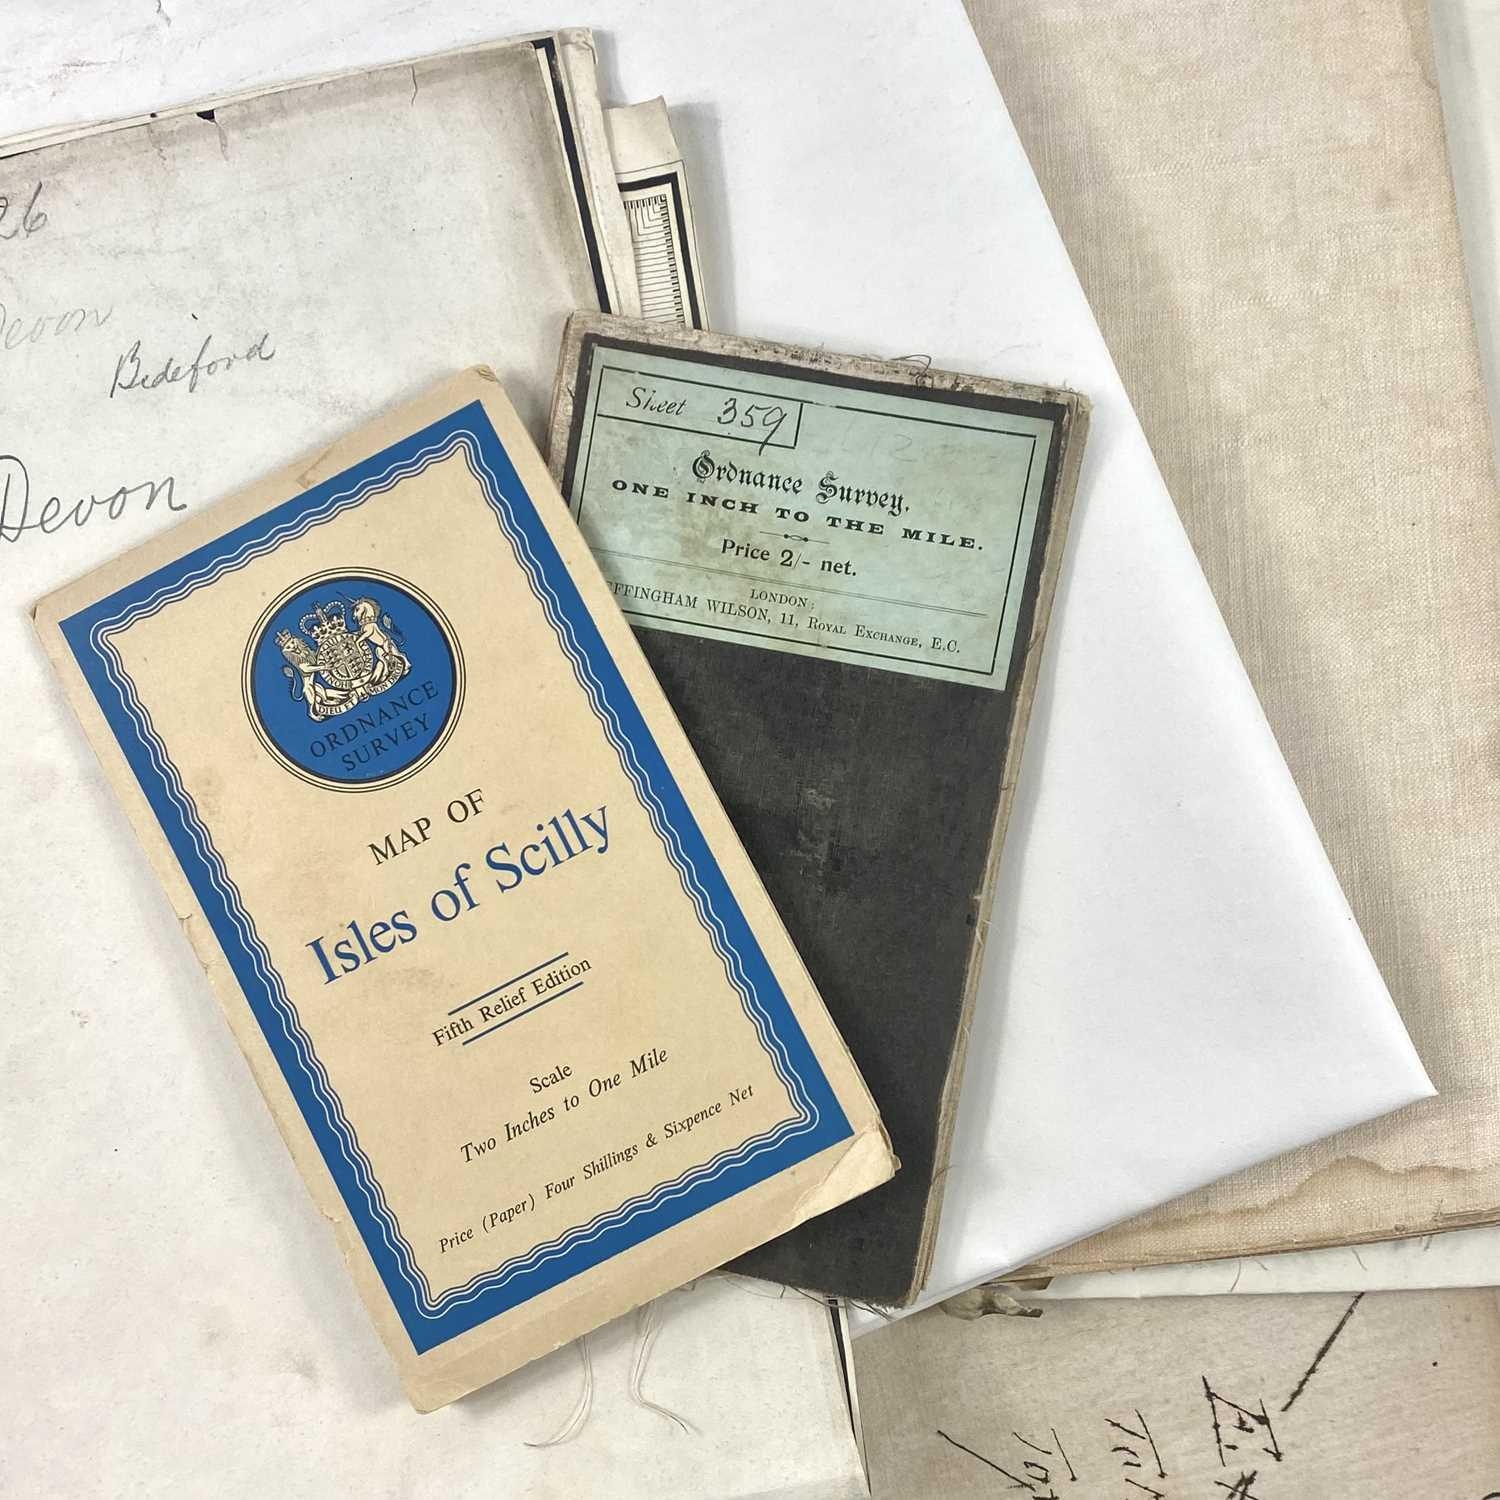 26
Devon
Bideford
Devon
Sheet 359
Ordnance Survey.
ONE INCH TO THE MILE.
Price 2/- net.
LONDON:
EFFINGHAM WILSON, 11, ROYAL EXCHANGE, E.C.
DIEU ET MON DROIT
ORDNANCE
SURVEY
MAP OF
Isles of Scilly
Fifth Relief Edition
Scale
Two Inches to One Mile
Price (Paper) Four Shillings & Sixpence Net